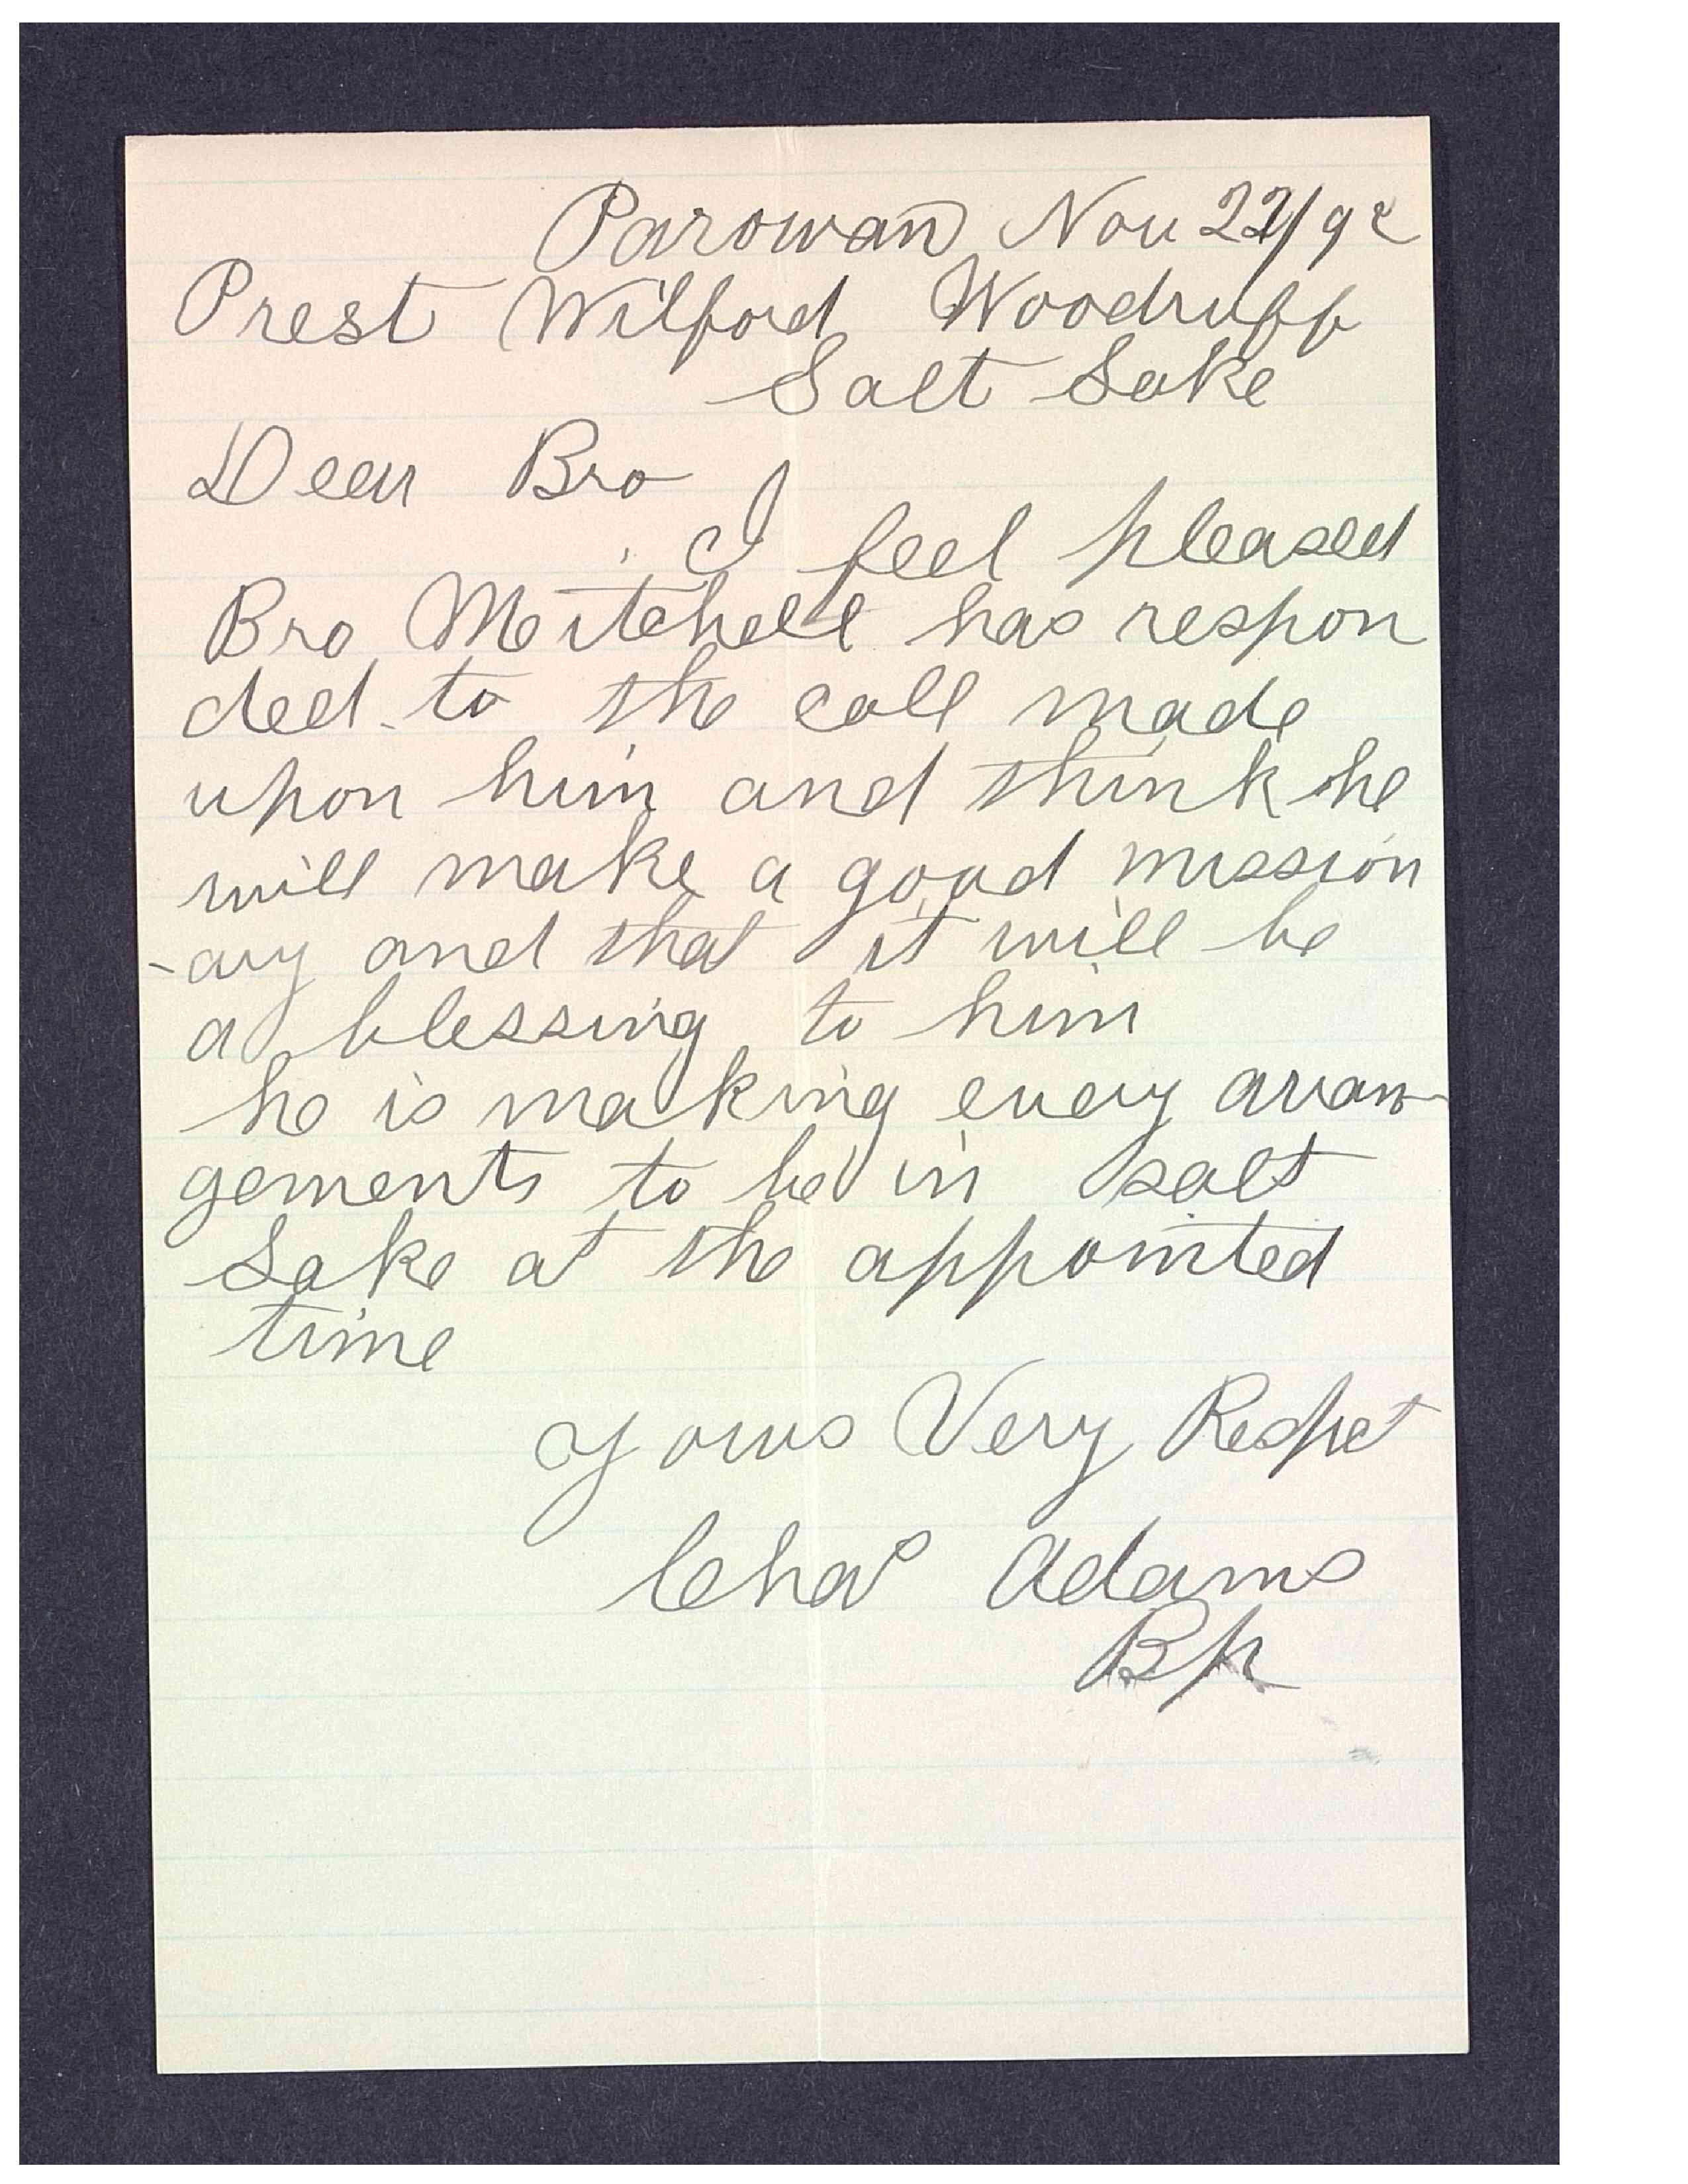 Parowan Nov 22/92
Prest Wilford Woodruff
Salt Lake
Dear Bro
I feel pleased
Bro Mitchell has respon
ded to the call made
upon him and think he
will make a good mission
-ary and that it will be
a blessing to him
he is making every arran-
gements to be in salt
Lake at the appointed
time
yours Very Respct
Chas Adams
Bp